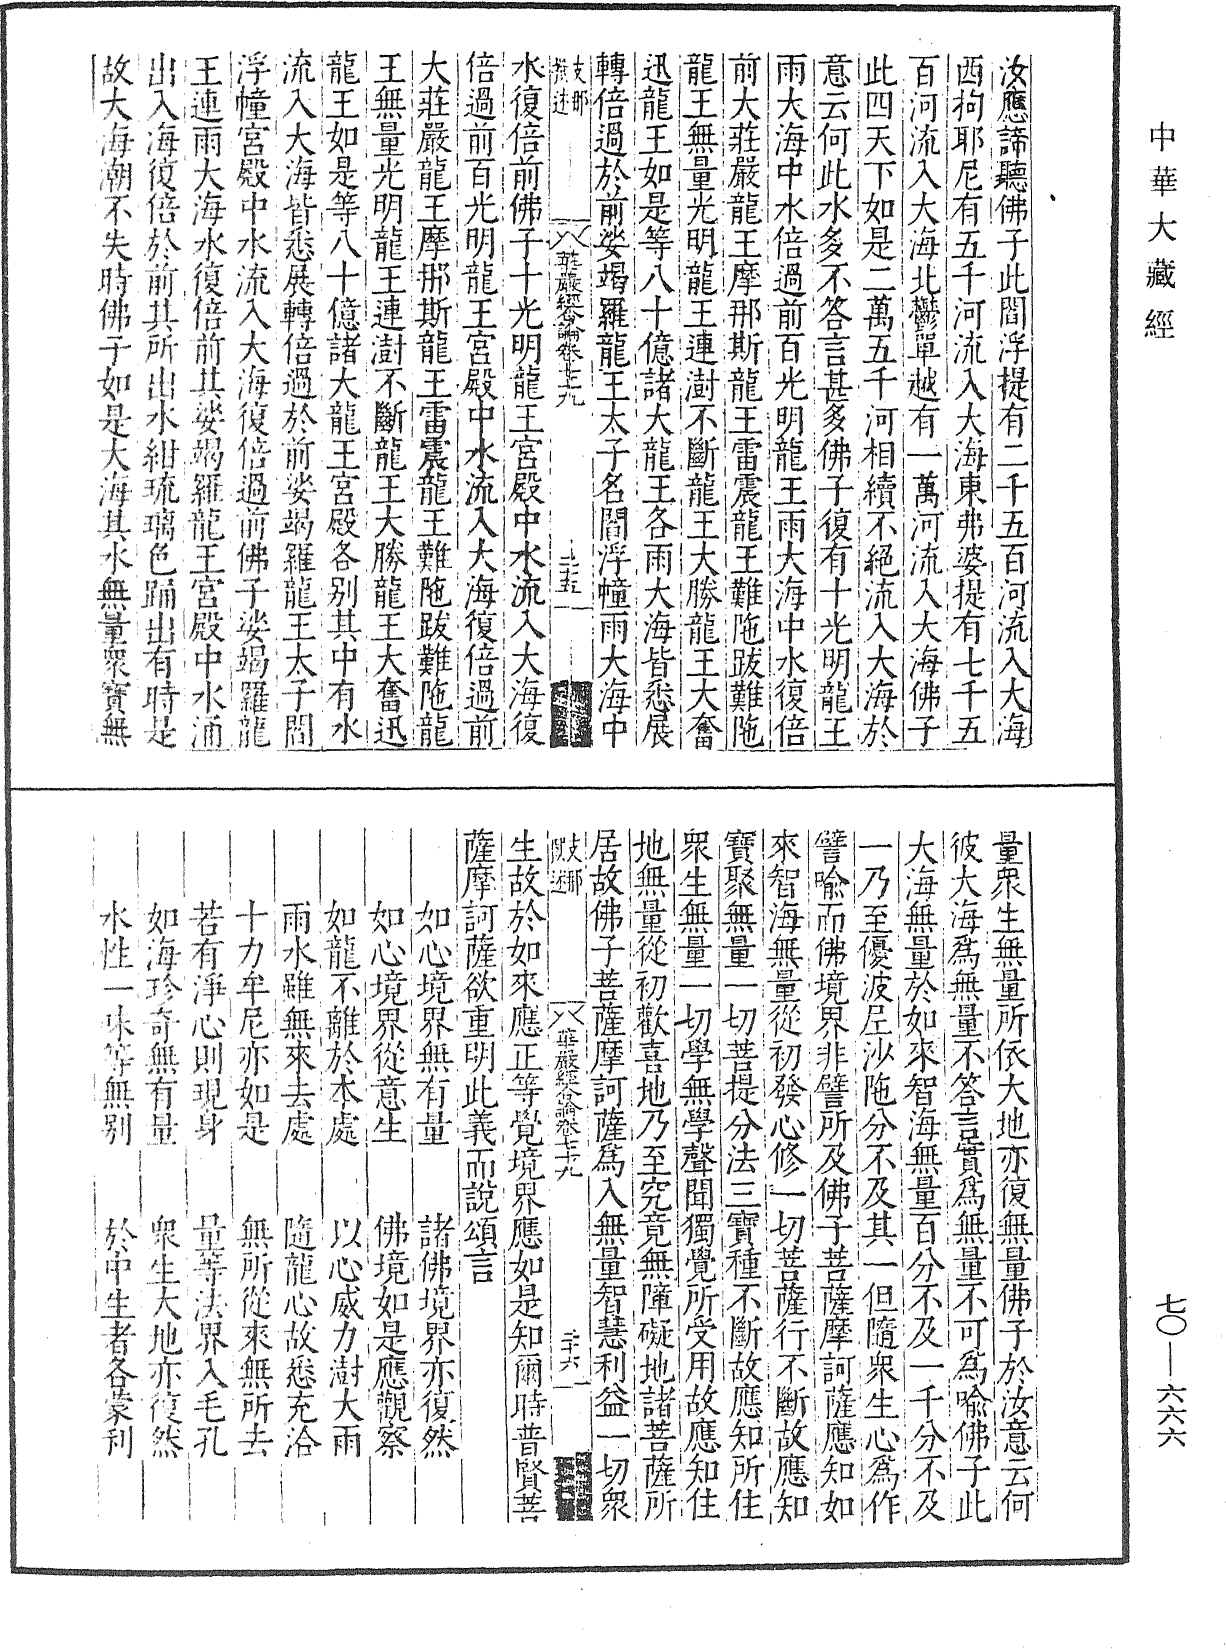 中華大藏經
汝應諦聽佛子此閻浮提有二千五百河流入大海
西拘耶尼有五千河流入大海東弗婆提有七千五
百河流入大海北鬱單越有一萬河流入大海佛子
此四天下如是二萬五千河相續不絕流入大海於
意云何此水多不答言甚多佛子復有十光明龍王
雨大海中水倍過前百光明龍王雨大海中水復倍
前大莊嚴龍王摩那斯龍王雷震龍王難陁跋難陁
龍王無量光明龍王連澍不斷龍王大勝龍王大奮
迅龍王如是等八十億諸大龍王各雨大海皆悉展
轉倍過於前娑竭羅龍王太子名閻浮幢雨大海中
支那
撰述
華嚴經合論卷七十九
二十五
水復倍前佛子十光明龍王宮殿中水流入大海復
倍過前百光明龍王宮殿中水流入大海復倍過前
大莊嚴龍王摩那斯龍王雷震龍王難陁跋難陁龍
王無量光明龍王連澍不斷龍王大勝龍王大奮迅
龍王如是等八十億諸大龍王宮殿各別其中有水
流入大海皆悉展轉倍過於前娑竭羅龍王太子閻
浮幢宮殿中水流入大海復倍過前佛子娑竭羅龍
王連雨大海水復倍前其娑竭羅龍王宮殿中水涌
出入海復倍於前其所出水紺琉璃色踊出有時是
故大海潮不失時佛子如是大海其水無量眾寶無
量眾生無量所依大地亦復無量佛子於汝意云何
彼大海為無量不答言實為無量不可為喻佛子此
大海無量於如來智海無量百分不及一千分不及
一乃至優波尼沙陁分不及其一但隨眾生心為作
譬喻而佛境界非譬所及佛子菩薩摩訶薩應知如
來智海無量從初發心修一切菩薩行不斷故應知
寶聚無量一切菩提分法三寶種不斷故應知所住
眾生無量一切學無學聲聞獨覺所受用故應知住
地無量從初歡喜地乃至究竟無障礙地諸菩薩所
居故佛子菩薩摩訶薩為入無量智慧利益一切眾
支那
撰述
華嚴經合論卷七十九
二十六
生故於如來應正等覺境界應如是知爾時普賢菩
薩摩訶薩欲重明此義而說頌言
如心境界無有量　諸佛境界亦復然
如心境界從意生　佛境如是應觀察
如龍不離於本處　以心威力澍大雨
雨水雖無來去處　隨龍心故悉充洽
十力牟尼亦如是　無所從來無所去
若有淨心則現身　量等法界入毛孔
如海珍奇無有量　眾生大地亦復然
水性一味等無別　於中生者各蒙利
七〇—六六六